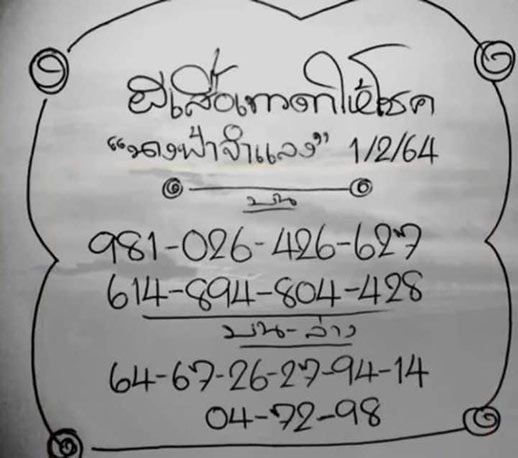 ผีเสื้อเทวดาให้โชค
“นางฟ้าจำแลง” 1/2/64
บน
981-026-426-627
614-894-804-428
บน-ล่าง
64-67-26-27-94-14
04-72-98